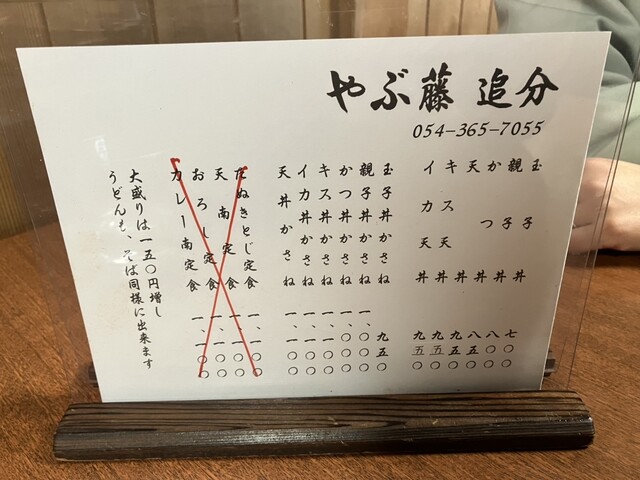 やぶ藤 追分
054-365-7055
玉子丼 七〇〇
親子丼 八〇〇
かつ丼 八五〇
天丼 九五〇
キス天丼 九五〇
イカ天丼 九五〇
玉子丼かさね 九五〇
親子丼かさね 一、〇〇〇
かつ丼かさね 一、〇五〇
キス丼かさね 一、一〇〇
イカ丼かさね 一、一〇〇
天丼かさね 一、一〇〇
たぬきとじ定食 一、一〇〇
天南定食 一、一〇〇
おろし定食 一、一〇〇
カレー南定食 一、一〇〇
大盛りは一五〇円増し
うどんも、そば同様に出来ます